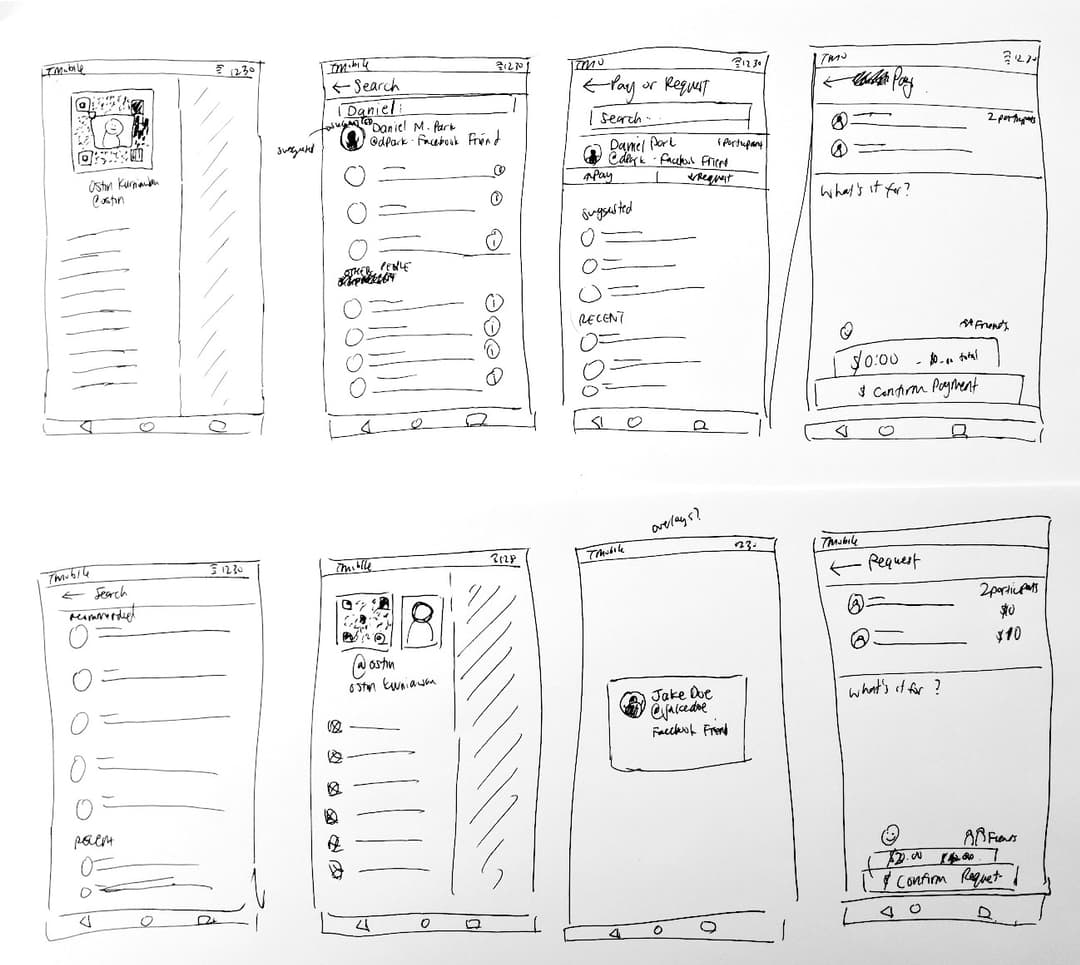 TMobile 1230
Ostin Kurniawan
@ostin
TMobile 1230
← Search
Daniel
suggested
Daniel M. Park
@dpark - Facebook Friend
OTHER PEOPLE
TMO 1230
← Pay or Request
Search
Daniel Park 1 Participant
@dpark - Facebook Friend
Pay | Request
Suggested
RECENT
TMO 1230
← Pay
2 participants
What's it for?
Friends
$0.00 - total
$ Confirm Payment
TMobile 1230
← Search
recommended
RECENT
TMobile 1128
@ostin
Ostin Kurniawan
overlays?
TMobile
Jake Doe
@jakedoe
Facebook Friend
TMobile
← Request
2 participants
$0
$10
What's it for?
$20.00
$ Confirm Request